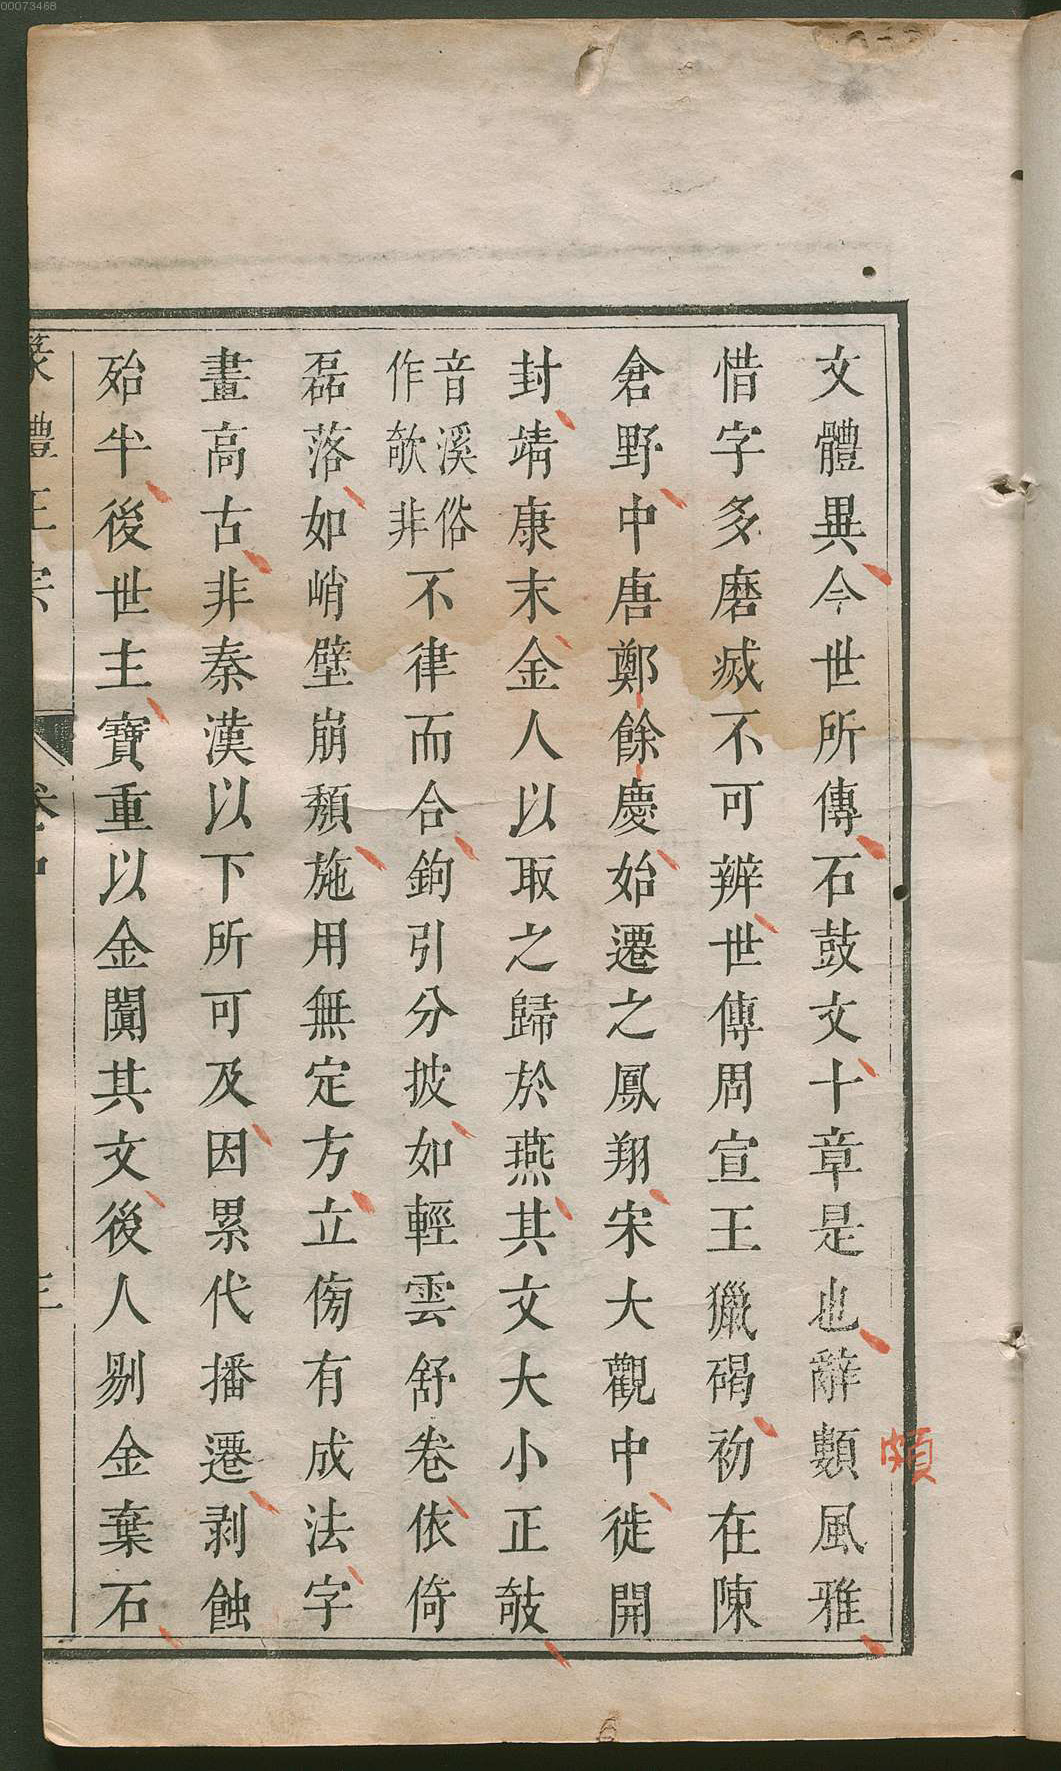 00073468
文體異今世所傳石鼓文十章是也辭類風雅
頗
惜字多磨滅不可辨世傳周宣王獵碣初在陳
倉野中唐鄭餘慶始遷之鳳翔宋大觀中徙開
封靖康末金人以取之歸於燕其文大小正攲
音溪俗
作欹非
不律而合鉤引分披如輕雲舒卷依倚
磊落如峭壁崩頽施用無定方立傍有成法字
畫高古非秦漢以下所可及因累代播遷剥蝕
殆半後世主寶重以金闐其文後人剔金棄石
篆體正宗
卷
三
6